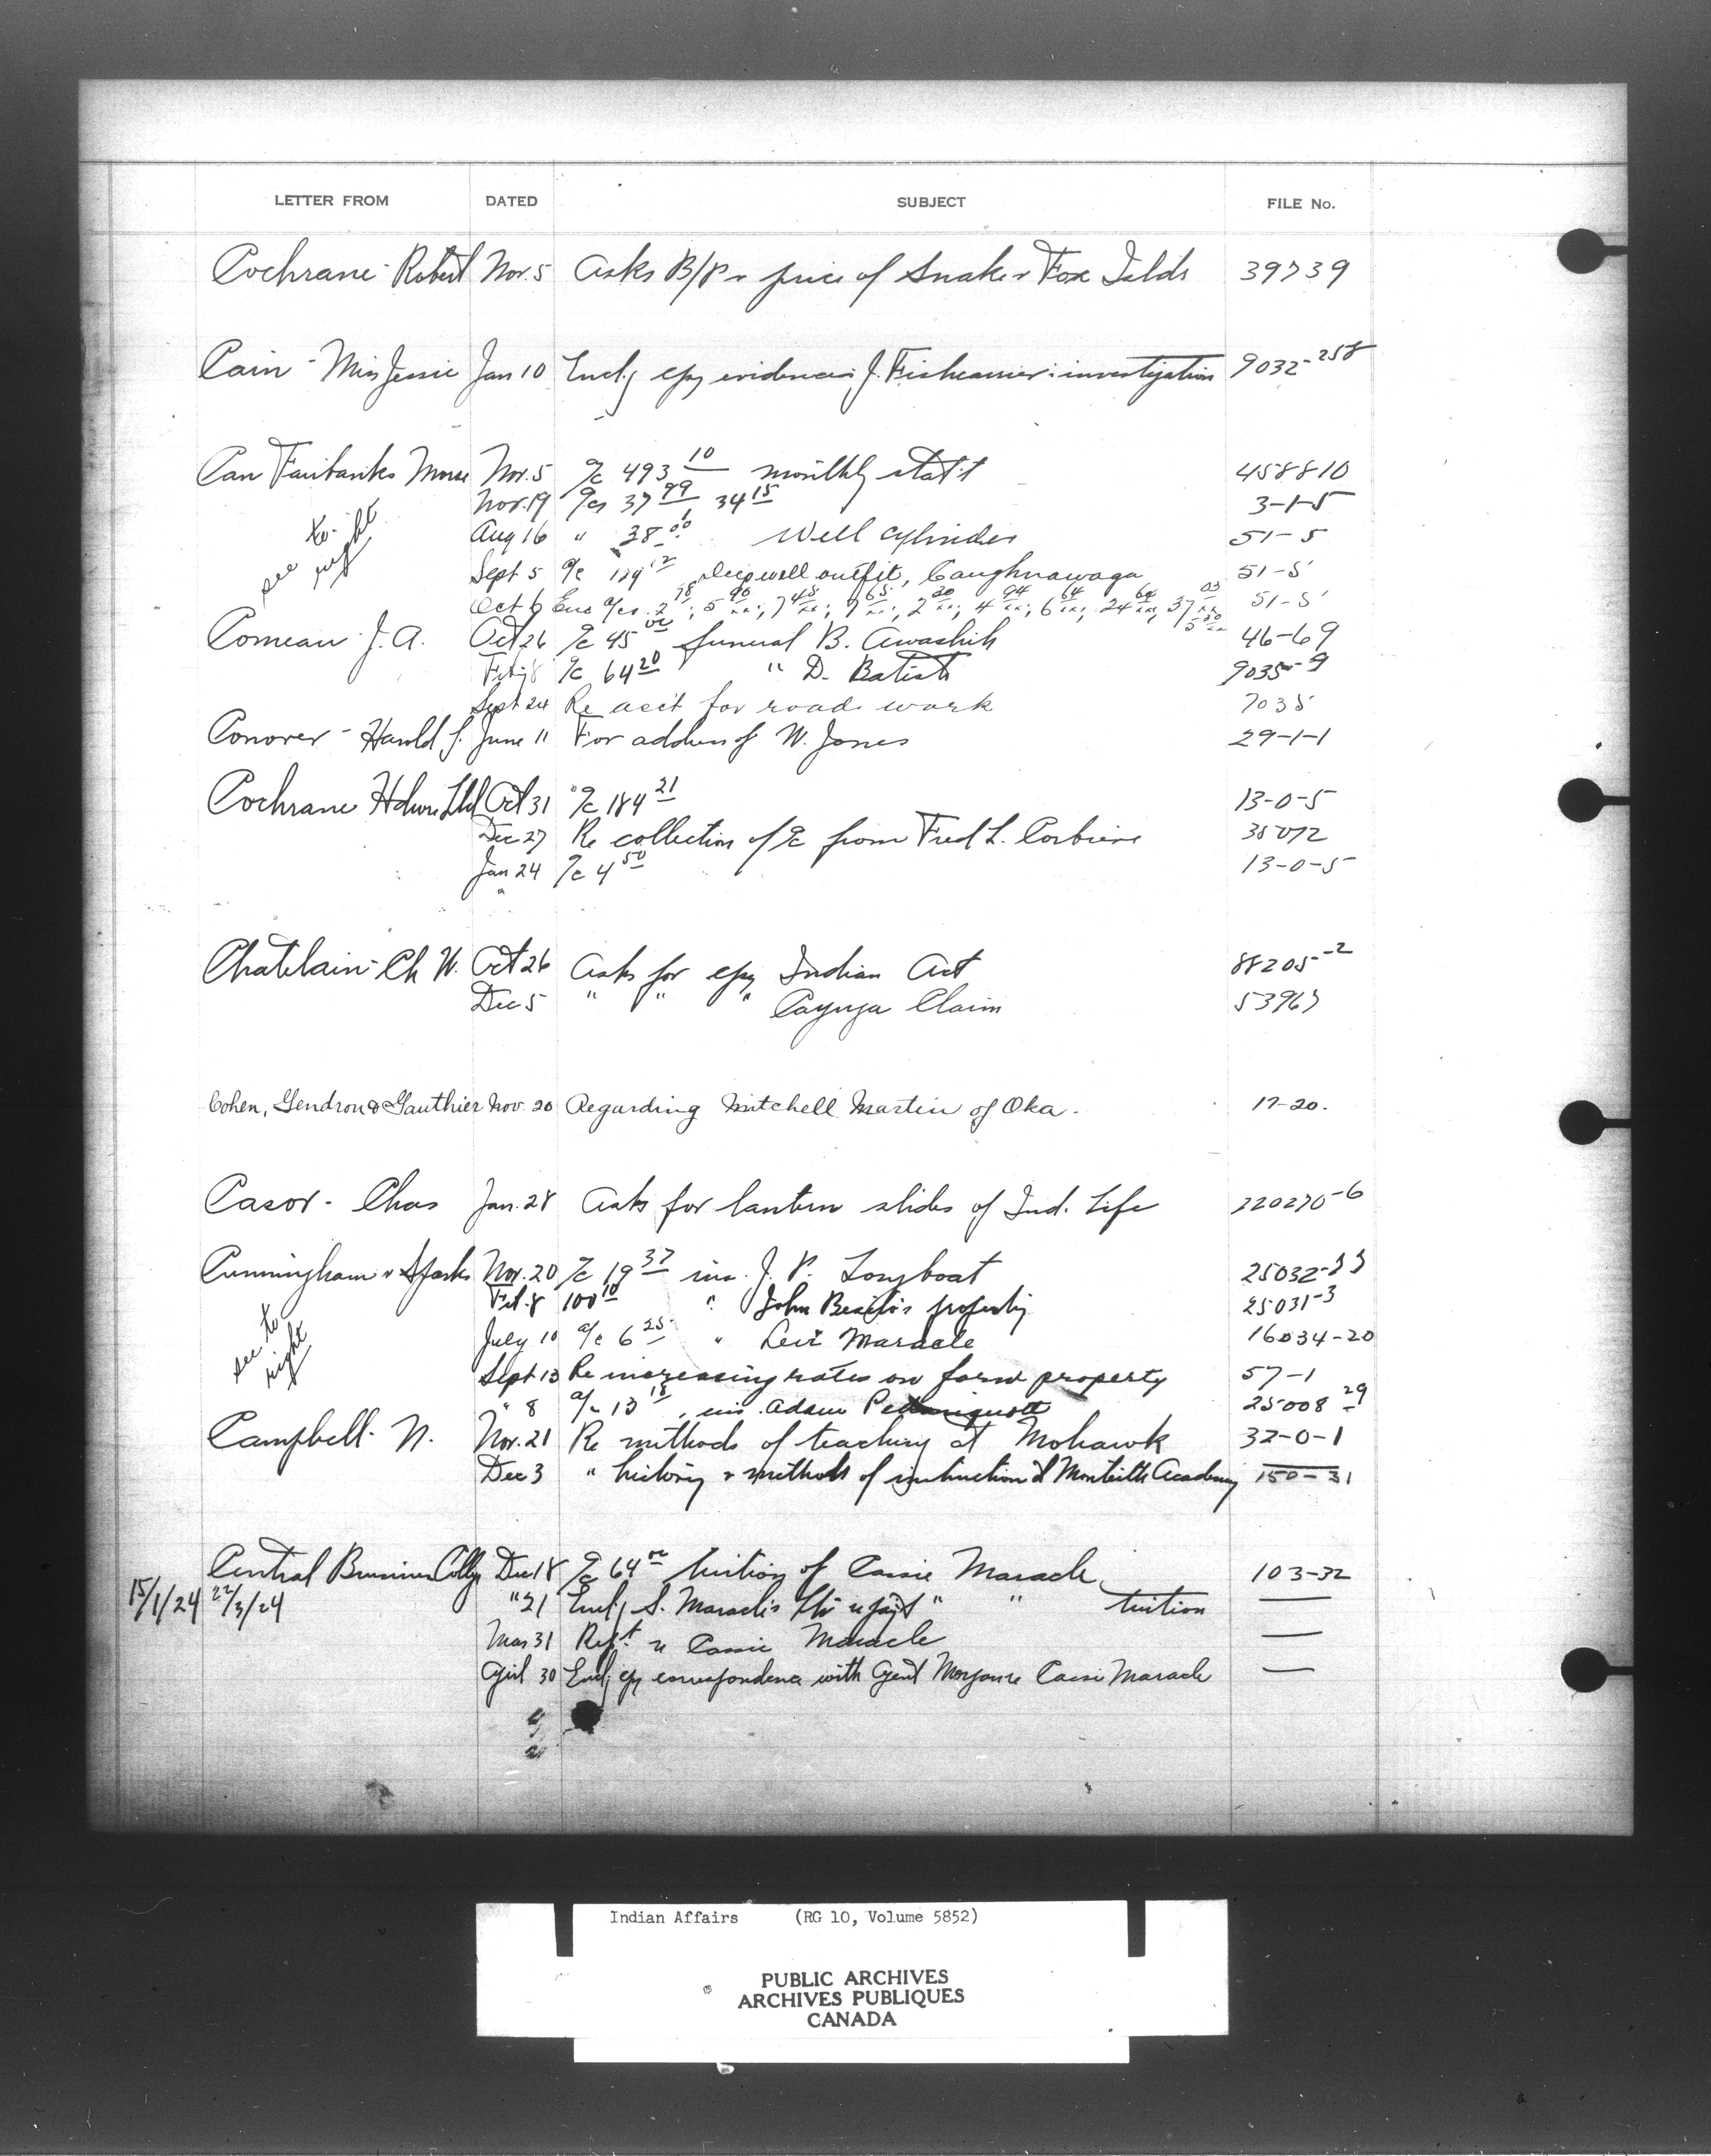 LETTER FROM DATED SUBJECT FILE No.
Cochrane - Robert Nov. 5 Asks B/P & price of Snake & Fox Islds 39739
Cain - Miss Jessie Jan 10 Encl'g cpy evidence J. investigation 9032-258
Can Fairbanks Morse Nov. 5 a/c 493 10 monthly stat't 458810
Nov. 19 a/cs 37 99, 34 15 3-1-5
see to right
Aug 16 " 38 00 Well cylinder 51-5
Sept 5 a/c 129 12 deepwell outfit, Caughnawaga 51-5
Oct 6 Enc a/cs 2 78; 5 96; 7 48; 9 65; 2 20; 4 94; 6 64; 24 64; 37 03 51-5
5 50
Comeau J. A. Oct 26 a/c 45 00 funeral B. Awashish 46-69
Feb 8 a/c 64 20 " D. Batist 9035-9
Sept 24 Re acct for road work 7035
Conover - Harold J. June 11 For address of W. Jones 29-1-1
Cochrane Hdwe Ltd Oct 31 a/c 184 21 13-0-5
Dec 27 Re collection of a/c from Fred L. Corbiere 35072
Jan 24 a/c 4 50 13-0-5
Chatelain - Ch W. Oct 26 Asks for cpy Indian Act 88205-2
Dec 5 " " " Cayuga Claim 53967
Cohen, Gendron & Gauthier Nov. 20 Regarding Mitchell Martin of Oka. 17-20.
Casor - Chas Jan. 28 Asks for lantern slides of Ind. Life 220270-6
Cunningham & Sparks Nov. 20 a/c 19 37 ins. J. P. Longboat 25032-33
Feb. 8 100 10 " John property 25031-3
see to right
July 10 a/c 6 25 " Levi Maracle 16034-20
Sept 13 Re increasing rates on farm property 57-1
" 8 a/c 13 18, ins. Adam 25008 29
Campbell - N. Nov. 21 Re methods of teaching at Mohawk 32-0-1
Dec 3 " history & methods of instruction at Monteith Academy 150-31
Central Business Collg Dec 18 a/c 64 00 tuition of Cassie Maracle 103-32
15/1/24 22/3/24 " 21 Encl'g S. Maracle's ltr re pay't " " tuition —
Mar 31 Rep't re Cassie Maracle —
April 30 Encl'g cpy correspondence with Agent Morgan re Cassie Maracle —
Indian Affairs (RG 10, Volume 5852)
PUBLIC ARCHIVES
ARCHIVES PUBLIQUES
CANADA